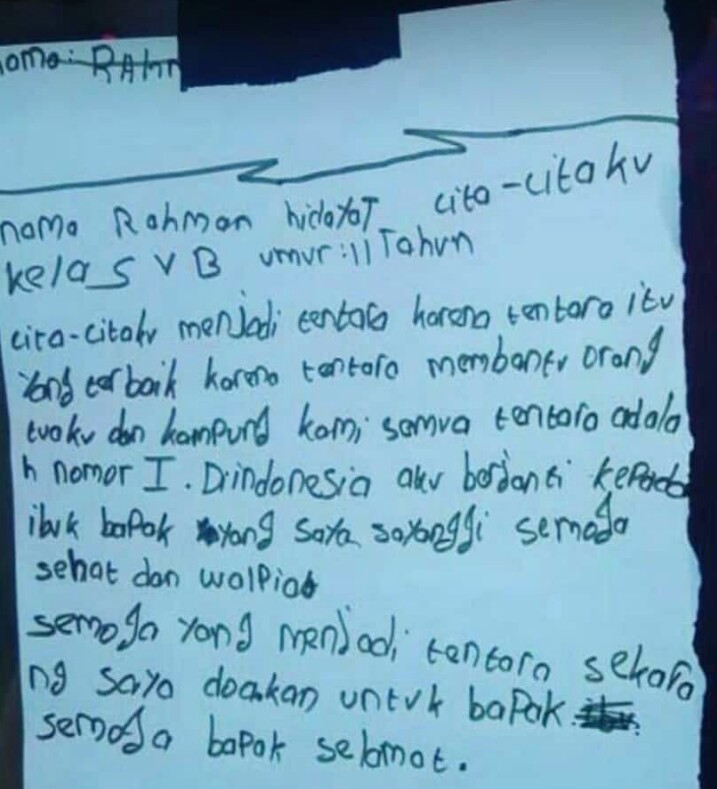 nama: RAHM
nama Rahman hidayaT cita-citaku
kelas V B umur: 11 Tahun
cita-citaku menjadi tentara karena tentara itu
yang terbaik karena tentara membantu orang
tuaku dan kampung kami semua tentara adala
h nomor I. Diindonesia aku berjanji kepada
ibuk bapak yang saya sayanggi semoga
sehat dan walpiat
semoga yang menjadi tentara sekara
ng saya doakan untuk bapak
semoga bapak selamat.